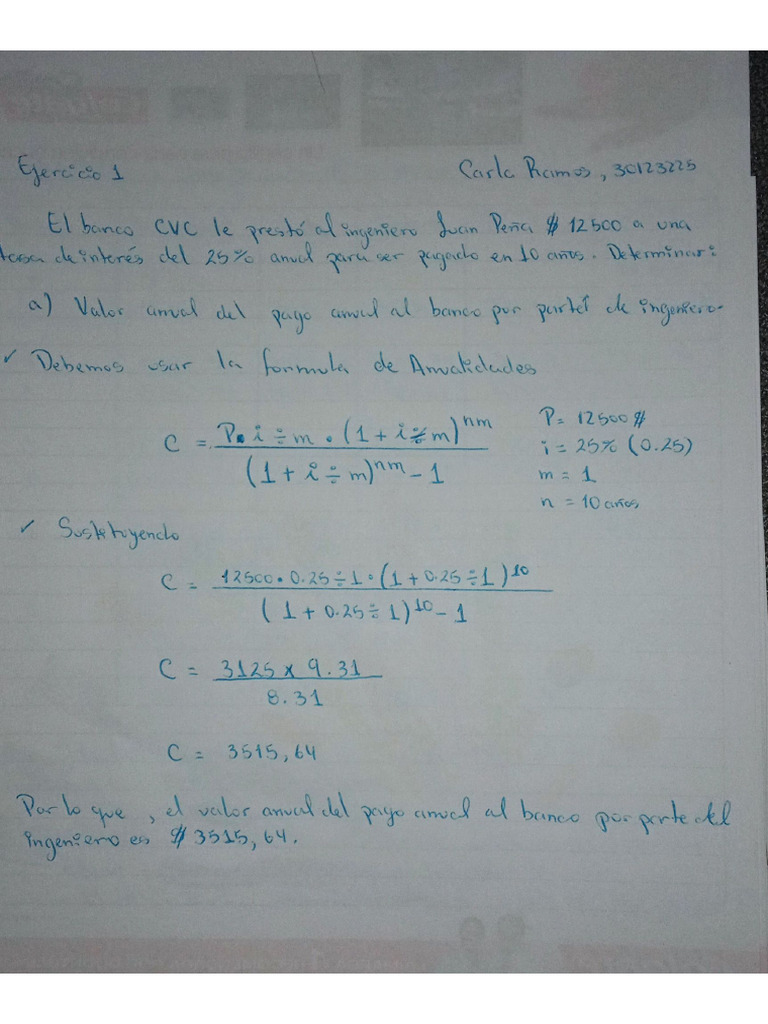 Ejercicio 1 Carla Ramos, 30123225
El banco CVC le prestó al ingeniero Juan Peña $ 12500 a una
tasa de interés del 25% anual para ser pagado en 10 años. Determinar:
a) Valor anual del pago anual al banco por parte de ingeniero.
✓ Debemos usar la formula de Anualidades
C = P • i ÷ m • (1 + i ÷ m)^nm / (1 + i ÷ m)^nm - 1
P = 12500 $
i = 25% (0.25)
m = 1
n = 10 años
✓ Sustituyendo
C = 12500 • 0.25 ÷ 1 • (1 + 0.25 ÷ 1)^10 / (1 + 0.25 ÷ 1)^10 - 1
C = 3125 x 9.31 / 8.31
C = 3515,64
Por lo que, el valor anual del pago anual al banco por parte del
ingeniero es $ 3515,64.